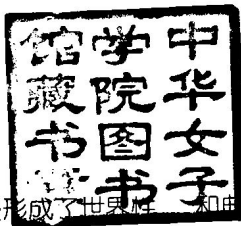 中华女子
学院图书
馆藏书章
形成了世界性 和